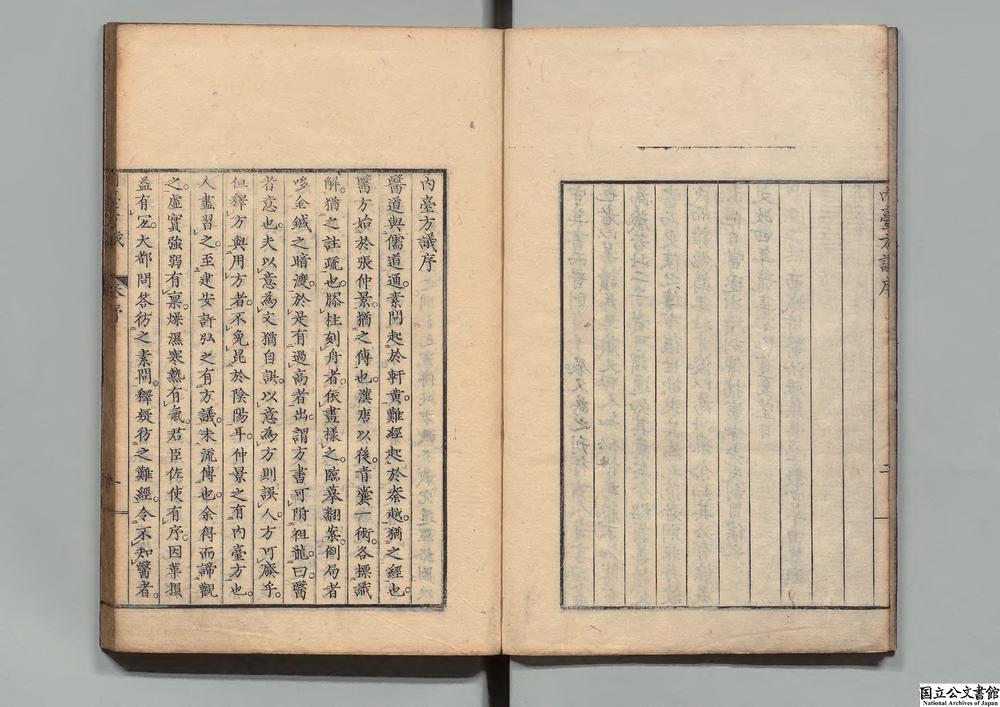 內臺方議序
醫道與儒道通素問起於軒黃難經起於秦越猶之經也
醫方始於張仲景猶之傳也漢唐以後青囊一術各標識
解猶之註疏也膠柱刻舟者依畫樣之臨摹翻案倒局者
哆金鍼之暗渡於是有過高者出謂方書可附祖龍曰醫
者意也夫以意為文猶自誤以意為方則誤人方可廢乎
但釋方與用方者不免昆於陰陽耳仲景之有內臺方也
人盡習之至建安許弘之有方議未流傳也余得而諦觀
之虛實強弱有稟燥濕寒熱有氣君臣佐使有序因革損
益有宜大都問答彷之素問釋疑彷之難經令不知醫者
內臺方議序
二
国立公文書館
National Archives of Japan